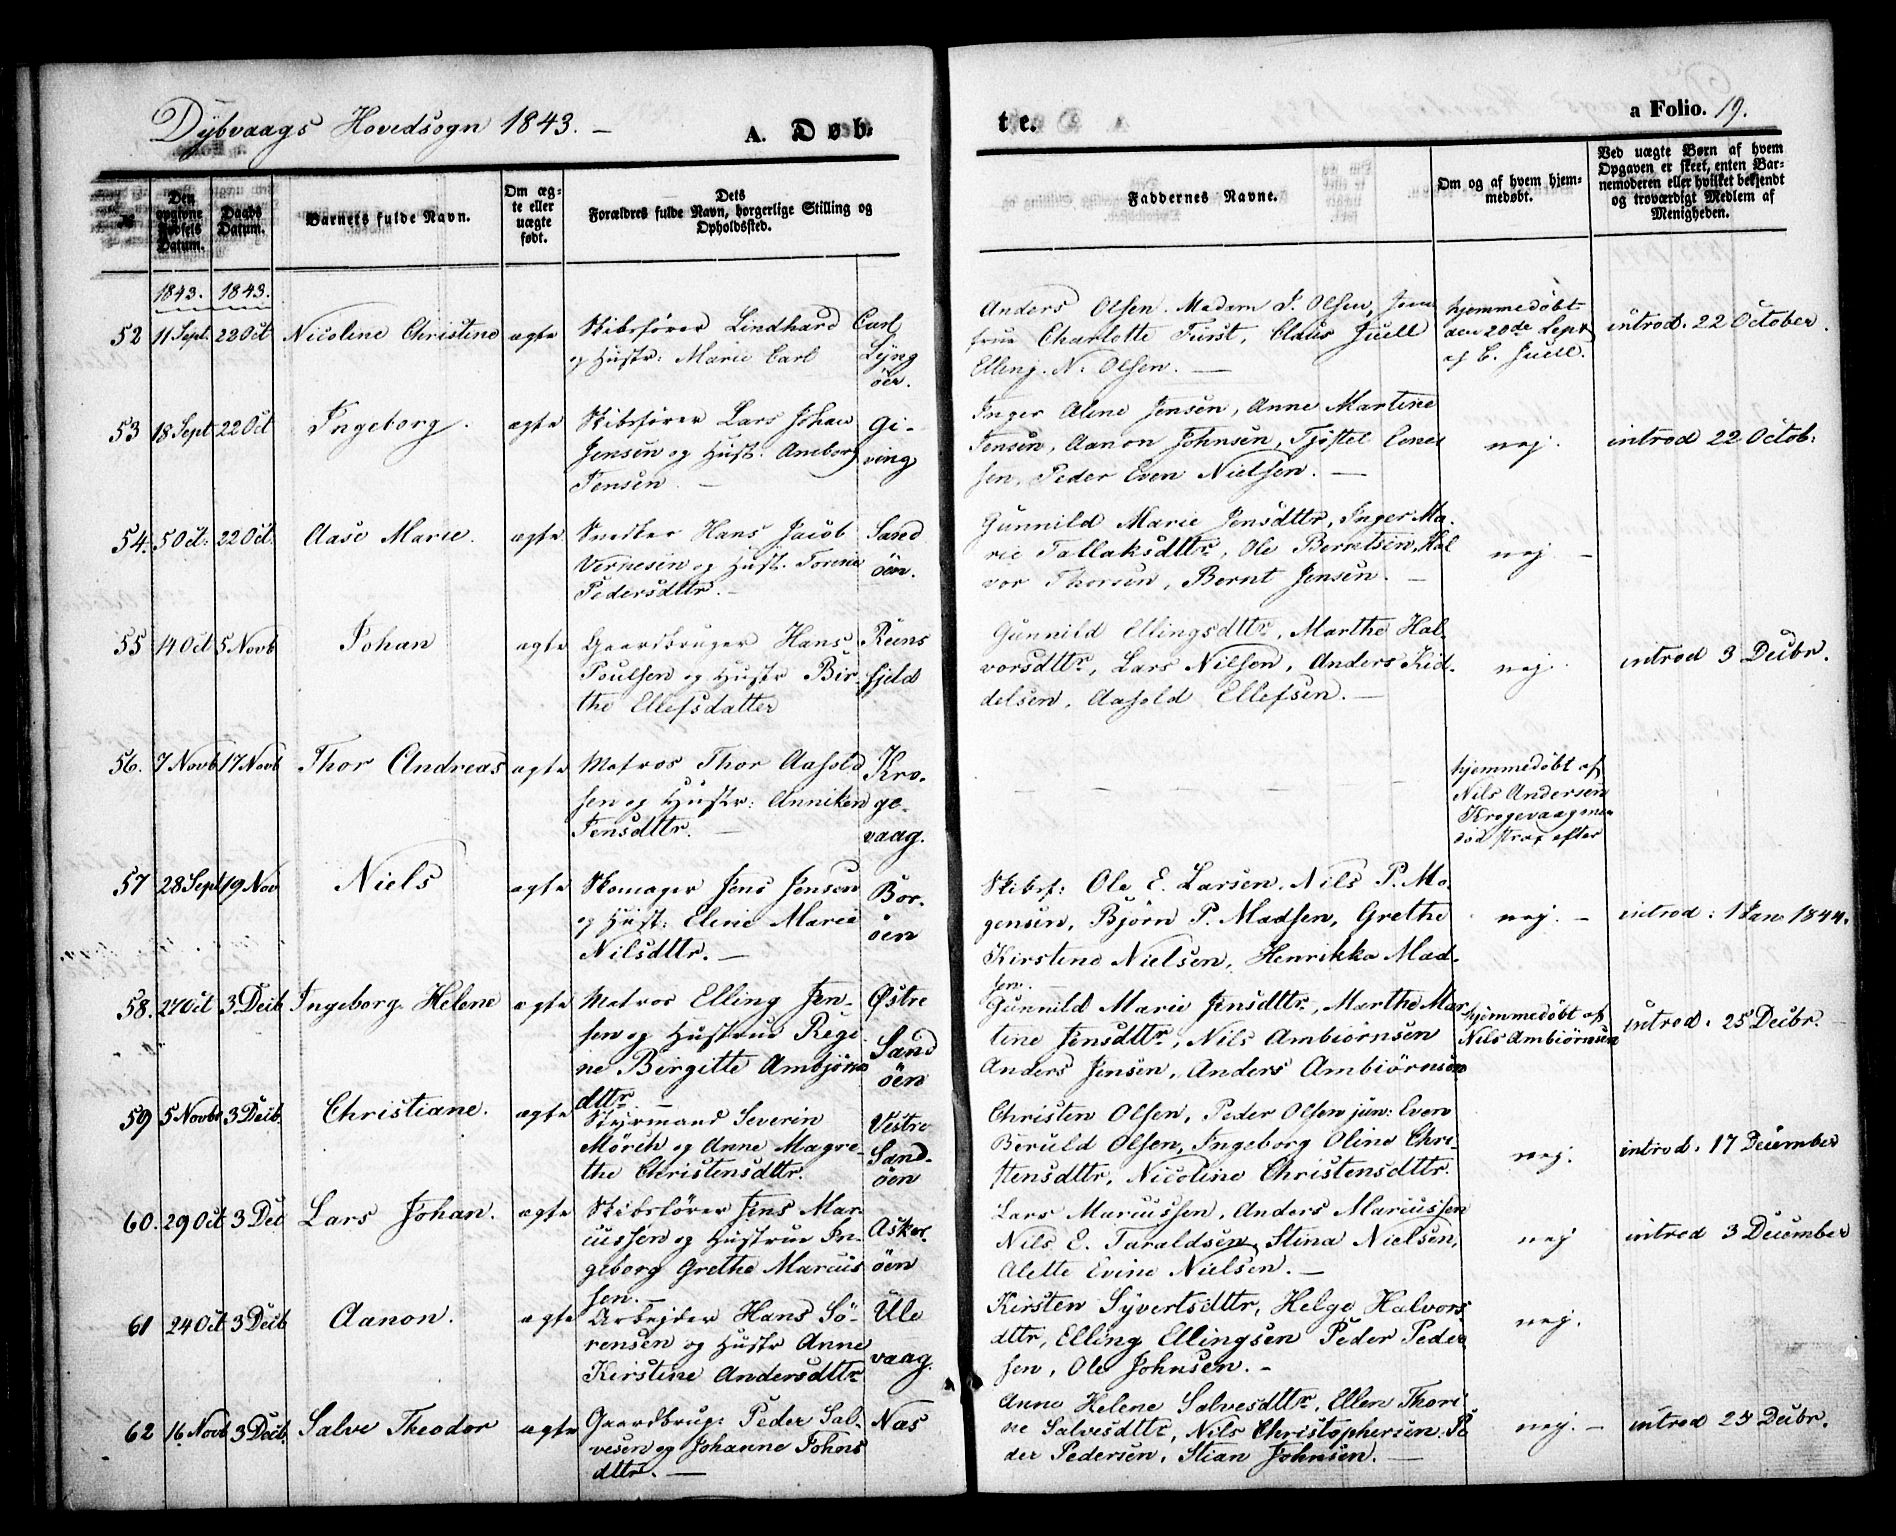 Dybvaags Hovedsogn 1843. —
A. Døb-
te.
a Folio. 19.
№
Den opgivne Fødsels Datum.
Daabs Datum.
Barnets fulde Navn.
Om ægte eller uægte født.
Dets Forældres fulde Navn, borgerlige Stilling og Opholdssted.
Faddernes Navne.
Om og af hvem hjemmedøbt.
Ved uægte Børn af hvem Opgaven er skeet, enten Barnemoderen eller hvilket bekjendt og troværdigt Medlem af Menigheden.
1843. 1843.
52 11 Sept. 22 Oct Nicoline Christine ægte
Skibsfører Lindhard Carl
og Hustr: Marie Carl
Lyng
öer.
Anders Olsen. Madem J. Olsen, Jom
frue Charlotte Fürst, Claus Juell
Elling. N. Olsen. —
hjemmedöbt
den 20de Sept
af C. Juell.
introd. 22 October.
53 18 Sept 22 Oct Ingeborg. ægte
Skibsfører Lars Johan
Jensen og Hust. Amborg
Jensen. —
Gi-
ving
Inger Aline Jensen, Anne Martine
Jensen, Aanon Johnsen, Tjöstel Even
sen, Peder Even Nielsen. —
nej.
introd 22 Octob:
54. 5 Oct. 22 Oct. Aase Marie. ægte
Snedker Hans Jacob
Vernesen og Hust. Torine
Pedersdttr. —
Sand
öen.
Gunnild Marie Jensdttr, Inger Ma-
rie Tallaksdttr, Ole Berntsen, Hal
vor Thorsen, Bernt Jensen. —
nej —
55 14 Oct 5 Novb Johan ægte
Gaardbruger Hans
Poulsen og Hustr Bir-
the Ellefsdatter
Reins
fjeld
Gunnild Ellingsdttr, Marthe Hal-
vorsdttr, Lars Nilsen, Anders Kid-
delsen, Aasold Ellefsen. —
nej.
introd 3 Decbr.
56. 7 Novb 17 Novb Thor Andreas ægte
Matros Thor Aasold
sen og Hustr: Anniken
Jensdttr. —
Kro-
ge-
vaag.
hjemmedöbt af
Nils Andersen
Krogevaag men
död strax efter
57 28 Sept 19 Nov Niels ægte
Skomager Jens Jensen
og Hust: Eline Marie
Nilsdttr. —
Bor-
öen
Skibsf: Ole E. Larsen, Nils P. Mo-
gensen, Björn P. Madsen, Grethe
Kirstene Nielsen, Henrikka Mad-
sen.
nej. —
introd: 1 Jan 1844.
58. 27 Oct 3 Decb Ingeborg Helene ægte
Matros Elling Jen-
sen og Hustrue Regi
ne Birgitte Ambjöns
dttr —
Østre
Sand
öen
Gunnild Marie Jensdttr, Marthe Mar
tine Jensdttr, Nils Ambiörnsen
Anders Jensen, Anders Ambiörnsen
hjemmedöbt af
Nils Ambiörnsen
introd. 25 Decbr.
59 5 Novbr 3 Decb. Christiane. ægte
Styrmand Severin
Mörch og Anne Magre-
the Christensdttr.
Vestre
Sand-
öen
Christen Olsen, Peder Olsen jun: Even
Beruld Olsen, Ingeborg Oline Chri-
stensdttr, Nicoline Christensdttr.
nej.
introd. 17 December
60. 29 Oct 3 Dec Lars Johan. ægte
Skibsfører Jens Mar-
cussen og Hustrue In-
geborg Grethe Marcus
sen. —
Asker-
öen
Lars Marcussen, Anders Marcussen
Nils E. Taraldsen, Stina Nielsen,
Alette Evine Nielsen. —
nej
introd 3 December
61 24 Oct 3 Decb Aanon. ægte
Arbejder Hans Sö-
rensen og Hustr Anne
Kirstine Andersdttr
Ule
vaag.
Kirsten Syvertsdttr, Helge Halvors
dttr, Elling Ellingsen Peder Peder
sen, Ole Johnsen. —
nej.
62 16 Novb 3 Decb. Salve Theodor ægte
Gaardbrug: Peder Sal-
vesen og Johanne Johns
dttr. —
Næs
Anne Helene Salvesdttr, Ellen Thori
ne Salvesdttr, Nils Christophersen, Pe
der Pedersen, Stian Johnsen. —
nej. —
introd 25 Decbr.